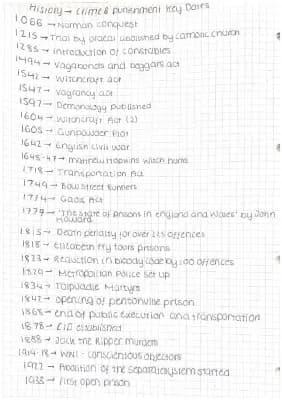 History → Crime & punishment Key Dates
1066 → Norman conquest
1215 → Trial by ordeal abolished by catholic church
1285 → introduction of constables
1494 → Vagabonds and beggars act
1542 → Witchcraft act
1547 → Vagrancy act
1597 → Demonology published
1604 → Witchcraft Act (2)
1605 → Gunpowder Plot
1642 → English civil war
1645-47 → Matthew Hopkins witch hunts
1718 → Transportation Act
1749 → Bow Street Runners
1774 → Gaols Act
1777 → 'The state of prisons in england and wales' by John
Howard
1815 → Death penalty for over 225 offences
1818 → Elizabeth Fry tours prisons
1823 → Reduction in bloody code by 100 offences
1829 → Metropolitan Police set up
1834 → Tolpuddle Martyrs
1842 → opening of pentonville prison
1868 → end of public execution and transportation
1878 → CID established
1888 → Jack the Ripper murders
1914-18 → WW1 - conscientious objectors
1922 → Abolition of the separate system started
1933 → First open prison